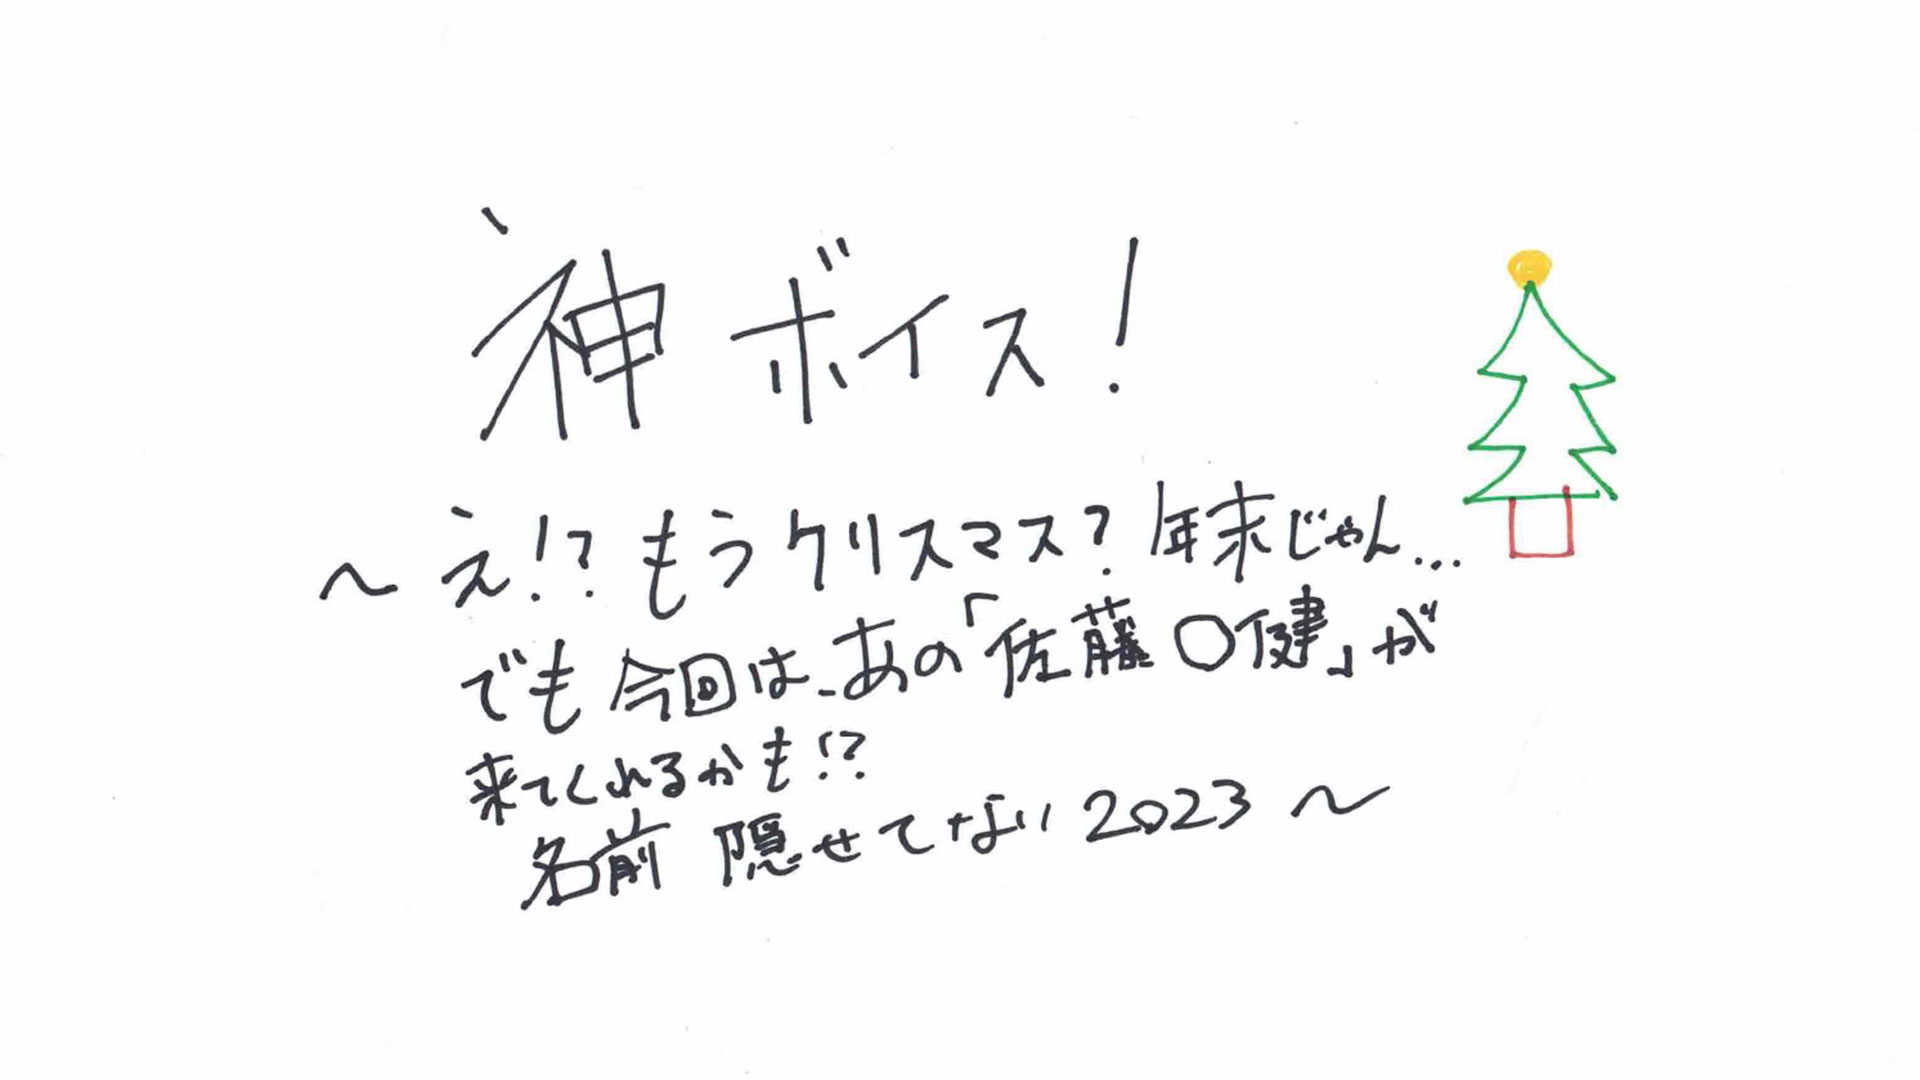 神ボイス!
～え!?もうクリスマス?年末じゃん…
でも今回は、あの「佐藤〇健」が
来てくれるかも!?
名前 隠せてない2023～